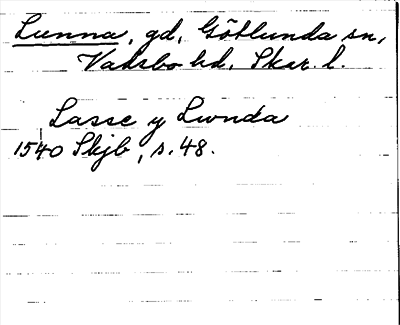 Lunna, gd, Götlunda sn,
Vadsbo hd, Skar. l.
Lasse y Lwnda
1540 Skjb, s. 48.